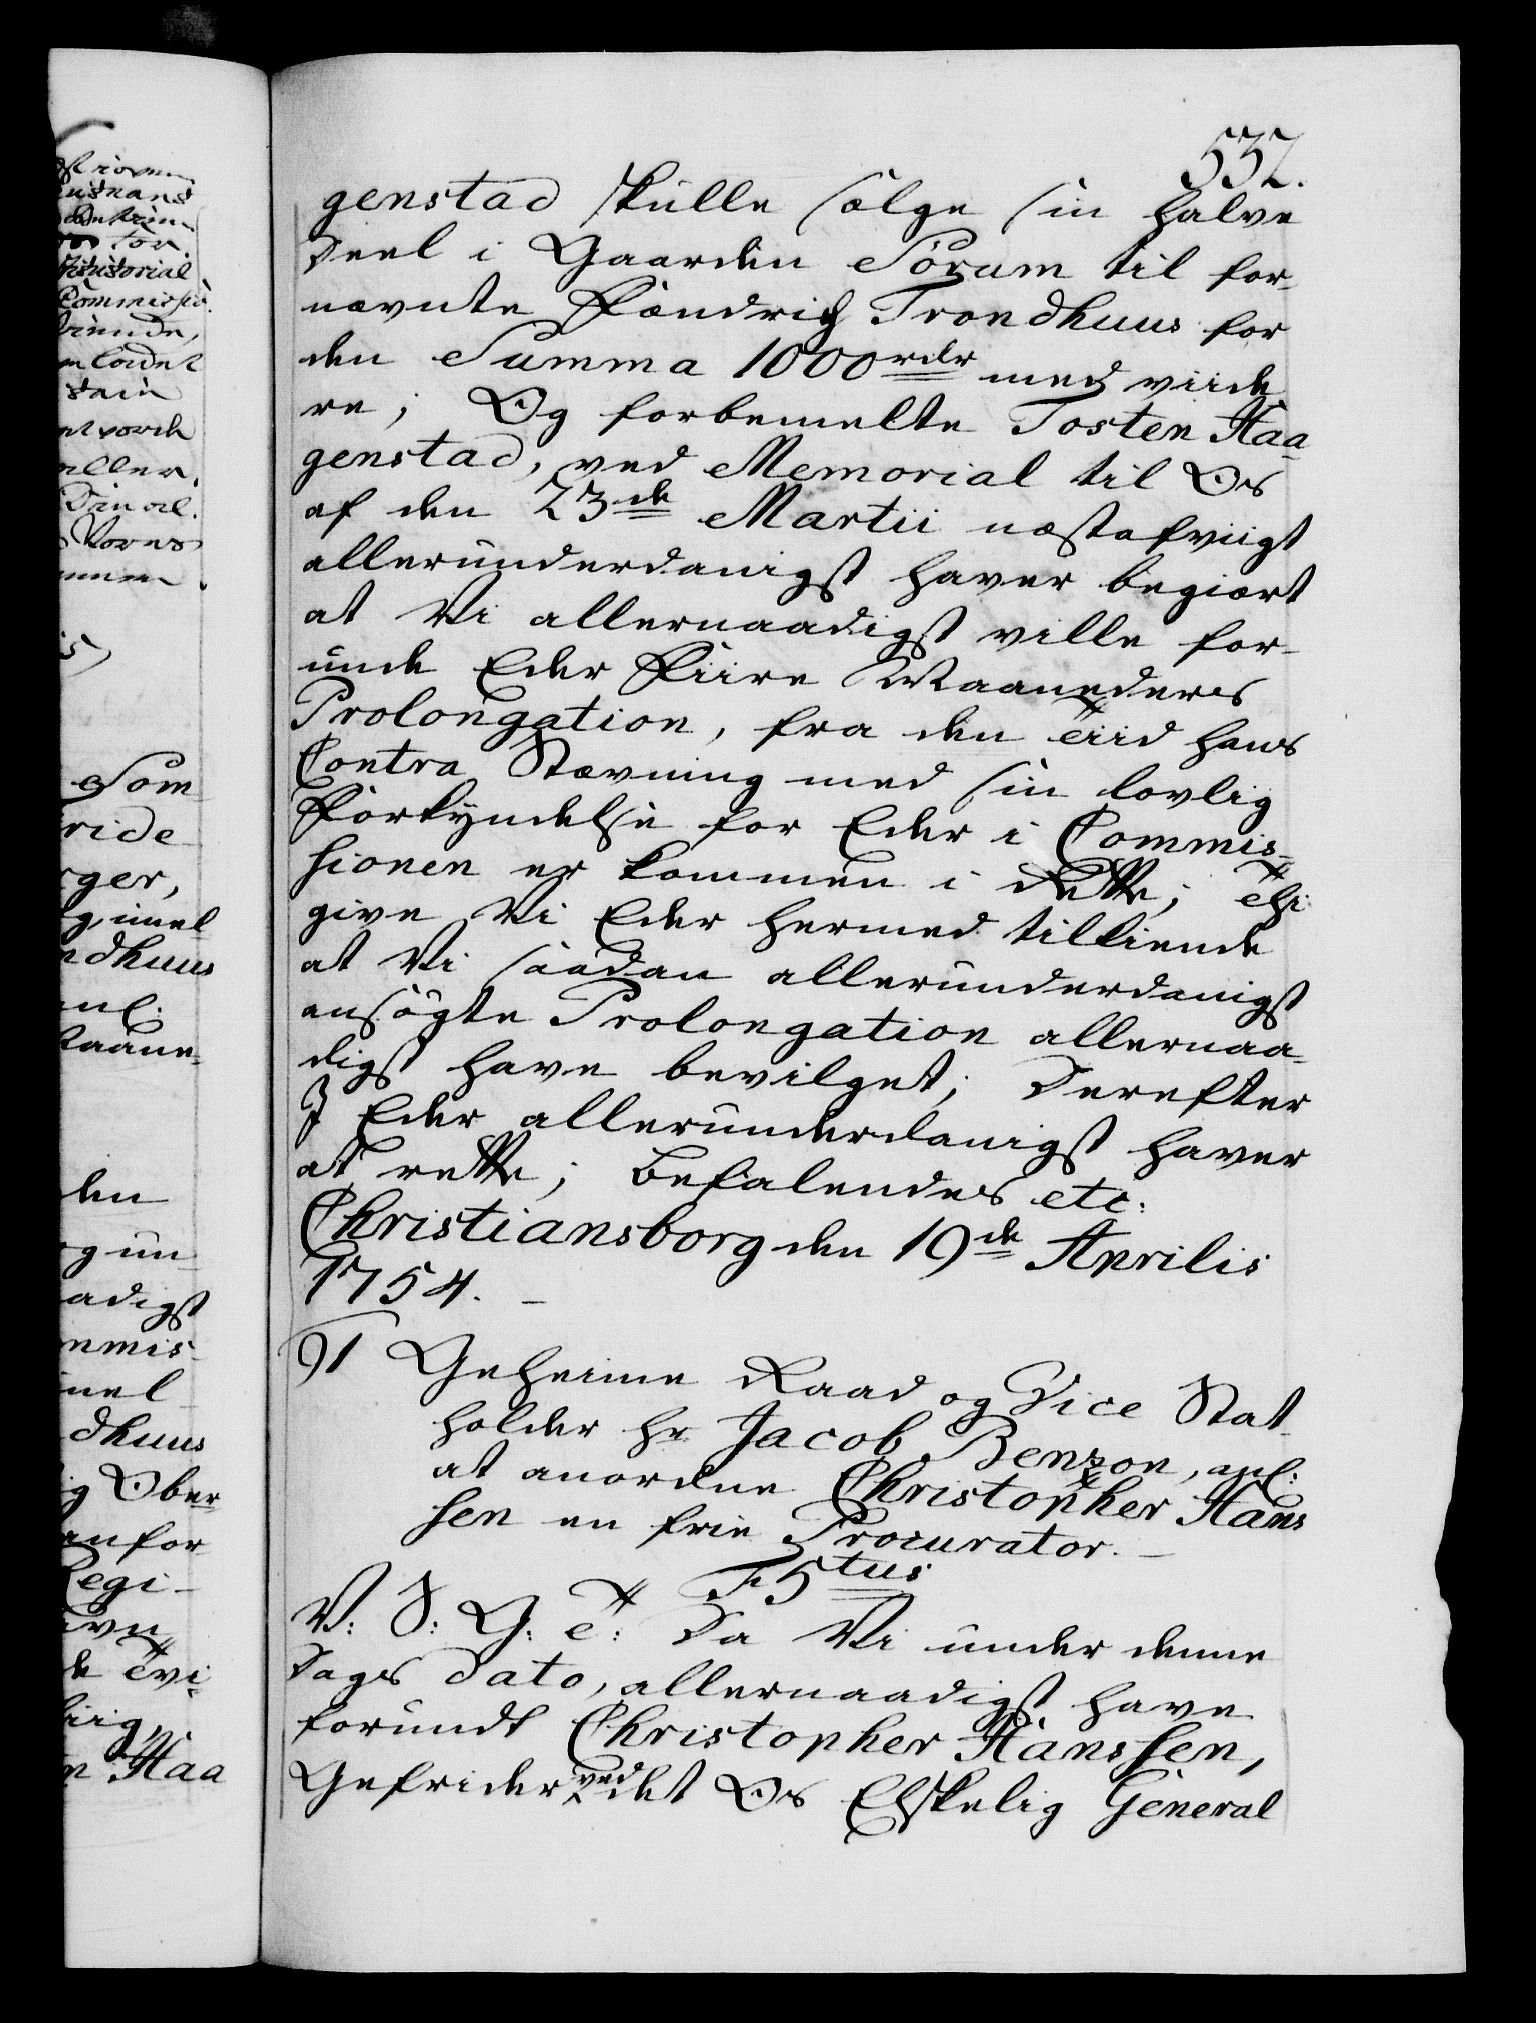 532.
genstad skulle sælge sin halve
Deel i Gaarden Sörum til for-
nævnte Fændrich Trondhuus for
den Summa 1000 rdr med viide
re; Og forbemelte Tosten Haa
genstad, ved Memorial til Os
af den 23de Martii næstafvigt
allerunderdanigst haver begiært
at Vi allernaadigst ville for-
unde Eder Fiire Maaneders
Prolongation, fra den Tiid hans
Contra Stævning med sin lovlig
Forkyndelse for Eder i Commis-
sionen er kommen i Rette; Thi
give Vi Eder hermed tilkiende
at Vi saadan allerunderdanigst
ansögte Prolongation allernaa-
digst have bevilget; Derefter
I Eder allerunderdanigst haver
at rette; Befalendes etc:
Christiansborg den 19de Aprilis
1754. -
91 Geheime Raad og Vice Stat-
holder Hr Jacob Benzon, anl:
at anordne Christopher Hans
sen en frie Procurator. -
F 5tus
V: S: G: T: Da Vi under denne
Dags Dato, allernaadigst have
forundt Christopher Hanssen,
Gefrider ved det Os Elskelig General